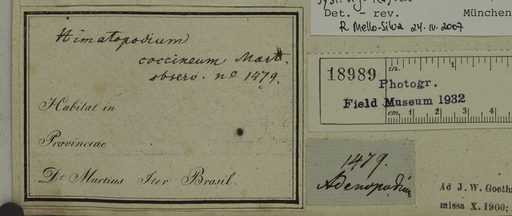 Himatopodium
coccineum Mart.
observ. nº 1479.
Habitat in
Provinciae
Dr Martius Iter Brasil.
Det. - rev. München
R. Mello-Silva 24.IV.2007
in. 1
18989
Photogr.
Field Museum 1932
cm 1 2 3 4
1479.
Adenopodium
Ad J. W. Goeth
missa X. 1900;